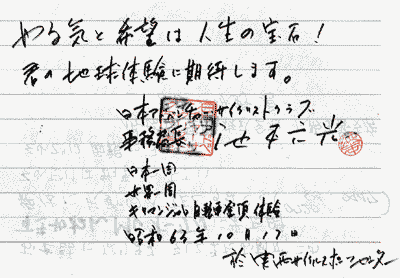 やる気と希望は人生の宝石!
君の地球体験に期待します。
日本アドベンチャーサイクリストクラブ
事務局長
日本一周
世界一周
キリマンジャロ自転車登頂体験
昭和63年10月17日
於